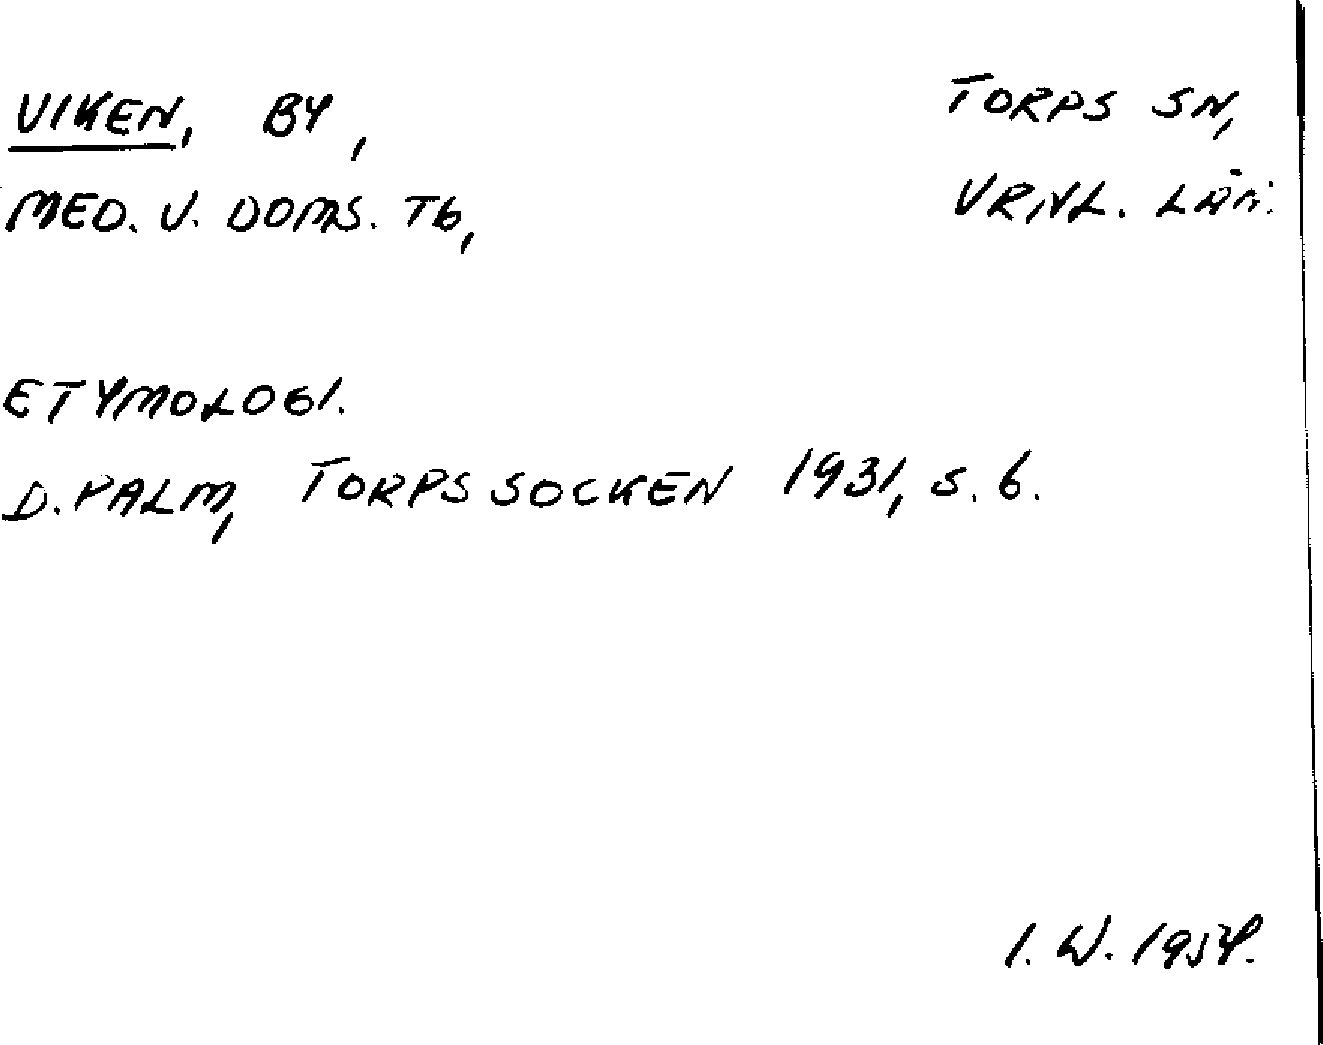 VIKEN, BY,
TORPS SN,
MED. V. DOMS. TG,
VRNL. LÄN.
ETYMOLOGI.
D. PALM, TORPS SOCKEN 1931, S. 6.
I. W. 1954.